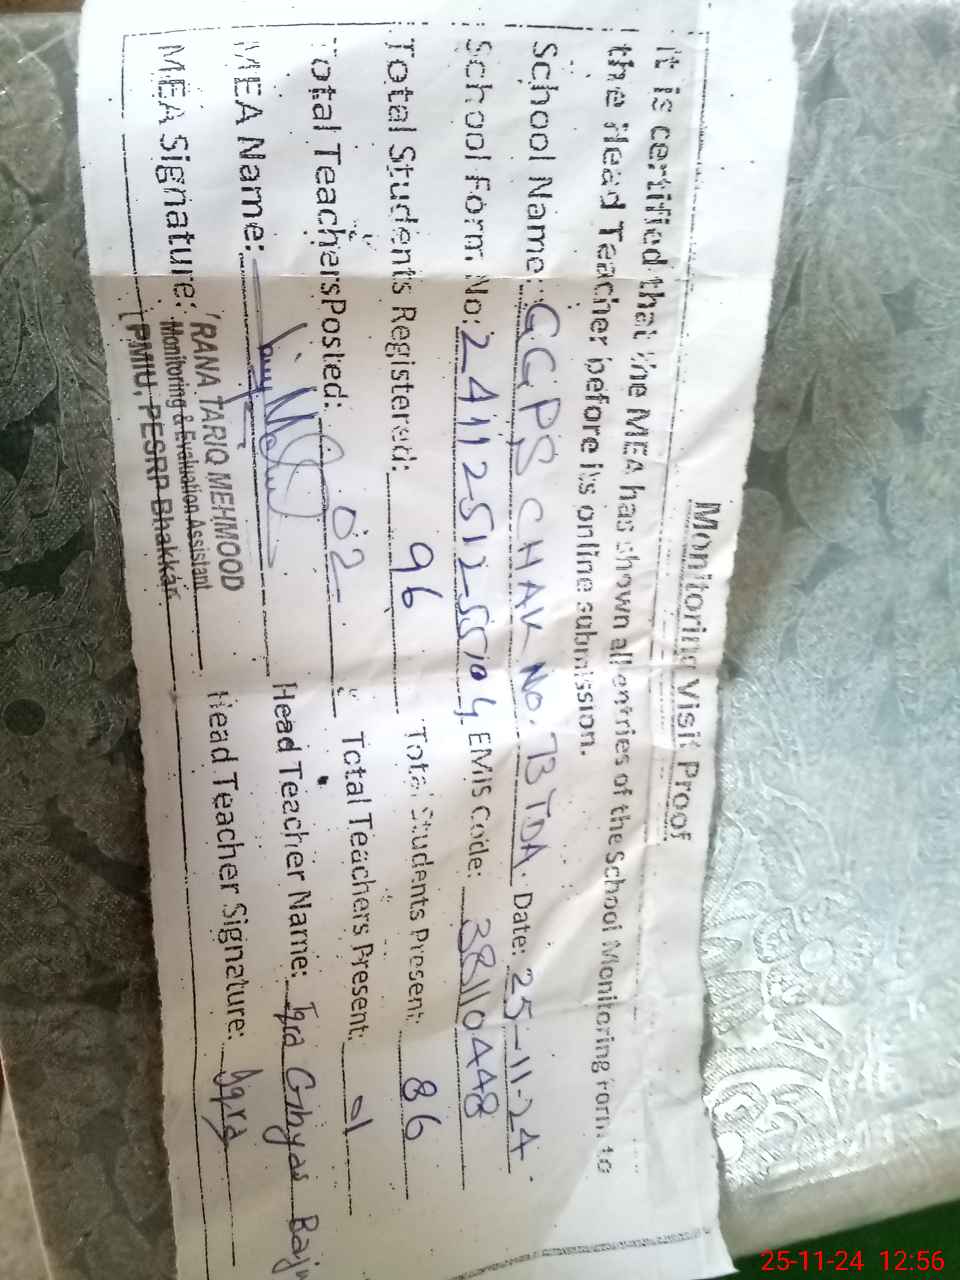 Monitoring Visit Proof
It is certified that the MEA has shown all entries of the School Monitoring Form to
the Head Teacher before its online submission.
School Name: GGPS CHAK No. 73 TDA. Date: 25-11-24.
School Form No: EMIS Code: 38110448
Total Students Registered: 96 Total Students Present: 86
Total Teachers Posted: 02 Total Teachers Present: 01
MEA Name: Head Teacher Name: Iqra
MEA Signature: Head Teacher Signature: Iqra
RANA TARIQ MEHMOOD
Monitoring & Evaluation Assistant
PMIU, PESRP Bhakkar
25-11-24 12:56